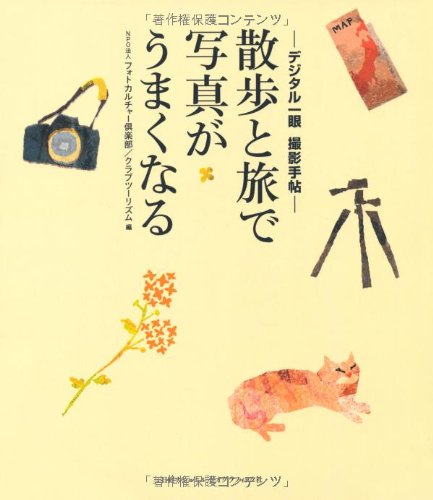 「著作権保護コンテンツ」
―デジタル一眼 撮影手帖―
散歩と旅で
写真が
うまくなる
NPO法人 フォトカルチャー倶楽部／クラブツーリズム 編
MAP
「著作権保護コンテンツ」